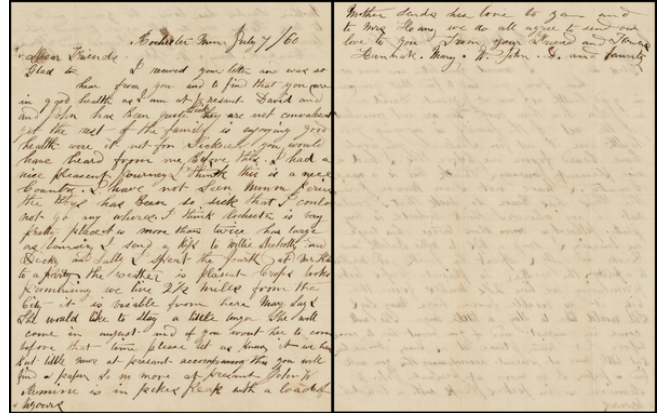 Rochester Minn. July 7/60
Dear Friends.
Glad to I received your letter and was so
hear from you and to find that you are
in good health as I am at present. David and
and John has been quite sick they are not convalescent
yet the rest of the family is enjoying good
health were it not for Sickness you would
have heard from me before this. I had a
nice pleasant journey I think this is a nice
Country. I have not seen
the Boys has been so sick that I could
not go any where I think Rochester is very
pretty place is more than twice has large
as I send a kiss to Willie and
and Sally I spent the fourth at
to a party the weather is plasent Crops looks
promising we live 2½ mills from the
City it is visable from here Mary Says
She would like to stay a little longer She will
come in august and if you want her to come
before that time please let us know it we have
but little news at present accompanying this you will
find a paper So no more at present John W
is in pikes peak with a load of
Mother sends her love to you and
to Mrs we do all agree to send our
love to you From your Friend and
Hannah. Mary. W. John. D. and family